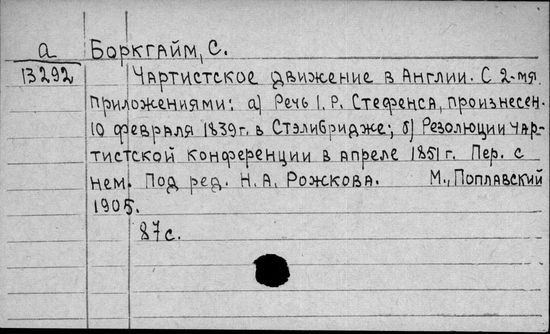 а Боркгайм, С.
13292 Чартистское движение в Англии. С 2-мя
приложениями: а) Речь І. Р. Стефенса, произнесен.
10 февраля 1839г. в Стэлибридже; б) Резолюции чар-
тистской конференции в апреле 1851 г. Пер. с
нем. Под ред. Н.А. Рожкова. М., Поплавский
1905.
87с.